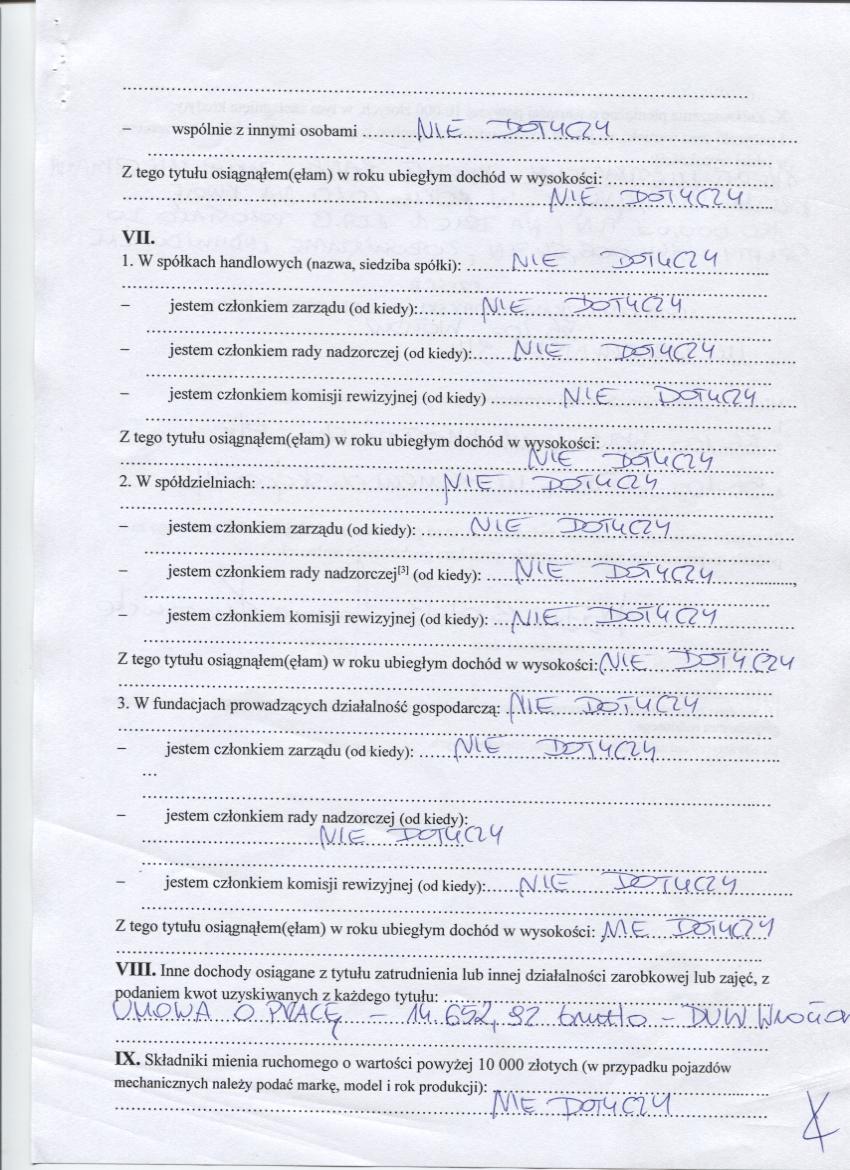 – wspólnie z innymi osobami NIE DOTYCZY
Z tego tytułu osiągnąłem(ęłam) w roku ubiegłym dochód w wysokości:
NIE DOTYCZY
VII.
1. W spółkach handlowych (nazwa, siedziba spółki): NIE DOTYCZY
– jestem członkiem zarządu (od kiedy): NIE DOTYCZY
– jestem członkiem rady nadzorczej (od kiedy): NIE DOTYCZY
– jestem członkiem komisji rewizyjnej (od kiedy) NIE DOTYCZY
Z tego tytułu osiągnąłem(ęłam) w roku ubiegłym dochód w wysokości:
NIE DOTYCZY
2. W spółdzielniach: NIE DOTYCZY
– jestem członkiem zarządu (od kiedy): NIE DOTYCZY
– jestem członkiem rady nadzorczej[3] (od kiedy): NIE DOTYCZY,
– jestem członkiem komisji rewizyjnej (od kiedy): NIE DOTYCZY
Z tego tytułu osiągnąłem(ęłam) w roku ubiegłym dochód w wysokości: NIE DOTYCZY
3. W fundacjach prowadzących działalność gospodarczą: NIE DOTYCZY
– jestem członkiem zarządu (od kiedy): NIE DOTYCZY
...
– jestem członkiem rady nadzorczej (od kiedy):
NIE DOTYCZY
– jestem członkiem komisji rewizyjnej (od kiedy): NIE DOTYCZY
Z tego tytułu osiągnąłem(ęłam) w roku ubiegłym dochód w wysokości: NIE DOTYCZY
VIII. Inne dochody osiągane z tytułu zatrudnienia lub innej działalności zarobkowej lub zajęć, z
podaniem kwot uzyskiwanych z każdego tytułu:
UMOWA O PRACĘ – 14.652,92 brutto – DUW
IX. Składniki mienia ruchomego o wartości powyżej 10 000 złotych (w przypadku pojazdów
mechanicznych należy podać markę, model i rok produkcji):
NIE DOTYCZY